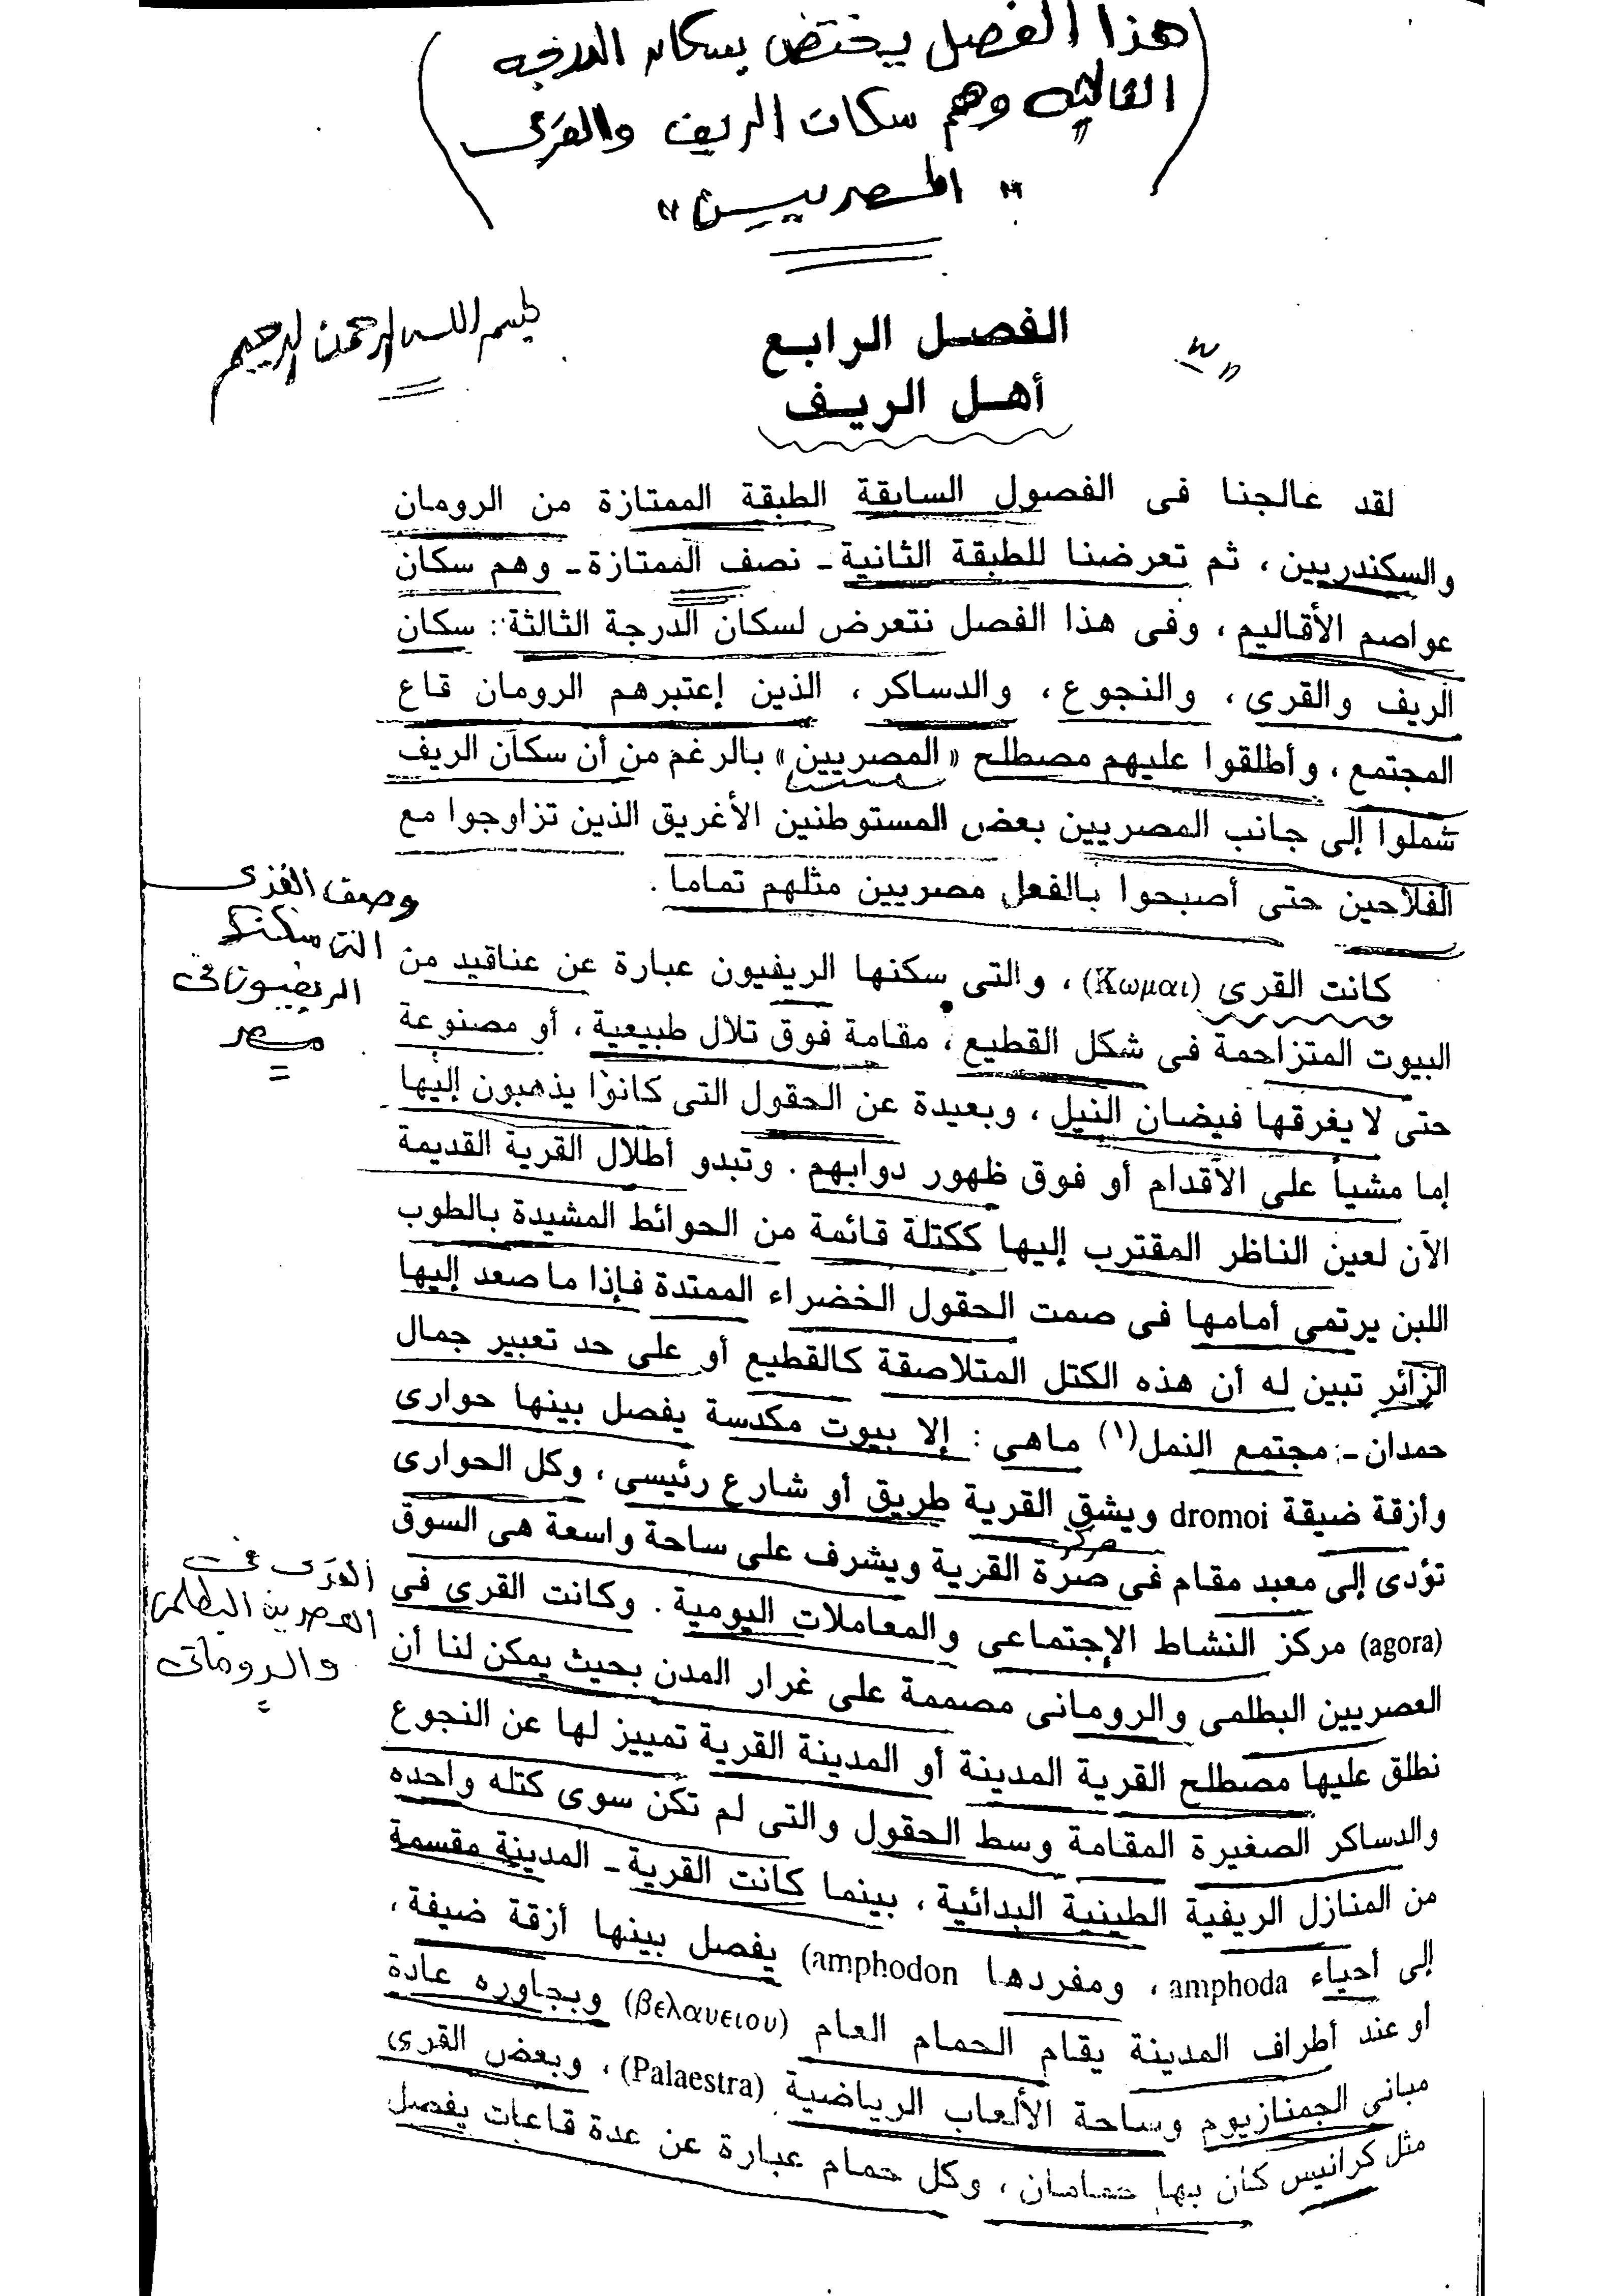 هذا الفصل يختص بسكان الدرجه
الثالثه وهم سكان الريف والقرى
" المصريين "
بسم الله الرحمن الرحيم
الفصل الرابع
أهل الريف
لقد عالجنا فى الفصول السابقة الطبقة الممتازة من الرومان
والسكندريين ، ثم تعرضنا للطبقة الثانية ـ نصف الممتازة ـ وهم سكان
عواصم الأقاليم ، وفى هذا الفصل نتعرض لسكان الدرجة الثالثة : سكان
الريف والقرى ، والنجوع ، والدساكر ، الذين إعتبرهم الرومان قاع
المجتمع ، وأطلقوا عليهم مصطلح « المصريين » بالرغم من أن سكان الريف
شملوا إلى جانب المصريين بعض المستوطنين الأغريق الذين تزاوجوا مع
الفلاحين حتى أصبحوا بالفعل مصريين مثلهم تماما .
وصف القرى
التى سكنها
الريفيون فى
مصر
كانت القرى (Κωμαι) ، والتى سكنها الريفيون عبارة عن عناقيد من
البيوت المتزاحمة فى شكل القطيع ، مقامة فوق تلال طبيعية ، أو مصنوعة
حتى لا يغرقها فيضان النيل ، وبعيدة عن الحقول التى كانوا يذهبون إليها
إما مشياً على الأقدام أو فوق ظهور دوابهم . وتبدو أطلال القرية القديمة
الآن لعين الناظر المقترب إليها ككتلة قائمة من الحوائط المشيدة بالطوب
اللبن يرتمى أمامها فى صمت الحقول الخضراء الممتدة فإذا ما صعد إليها
الزائر تبين له أن هذه الكتل المتلاصقة كالقطيع أو على حد تعبير جمال
حمدان ـ : مجتمع النمل(١) ماهى : إلا بيوت مكدسة يفصل بينها حوارى
وأزقة ضيقة dromoi ويشق القرية طريق أو شارع رئيسى ، وكل الحوارى
مركز
تؤدى إلى معبد مقام فى صرة القرية ويشرف على ساحة واسعة هى السوق
القرى فى
العصرين البطلمى
والرومانى
(agora) مركز النشاط الإجتماعى والمعاملات اليومية . وكانت القرى فى
العصريين البطلمى والرومانى مصممة على غرار المدن بحيث يمكن لنا أن
نطلق عليها مصطلح القرية المدينة أو المدينة القرية تمييز لها عن النجوع
والدساكر الصغيرة المقامة وسط الحقول والتى لم تكن سوى كتله واحده
من المنازل الريفية الطينية البدائية ، بينما كانت القرية ـ المدينة مقسمة
إلى أحياء amphoda ، ومفردها amphodon) يفصل بينها أزقة ضيفة ،
أو عند أطراف المدينة يقام الحمام العام (βελαυειου) وبجاوره عادة
مبانى الجمنازيوم وساحة الألعاب الرياضية (Palaestra) ، وبعض القرى
مثل كرانيس كان بها حمامان ، وكل حمام عبارة عن عدة قاعات يفصل